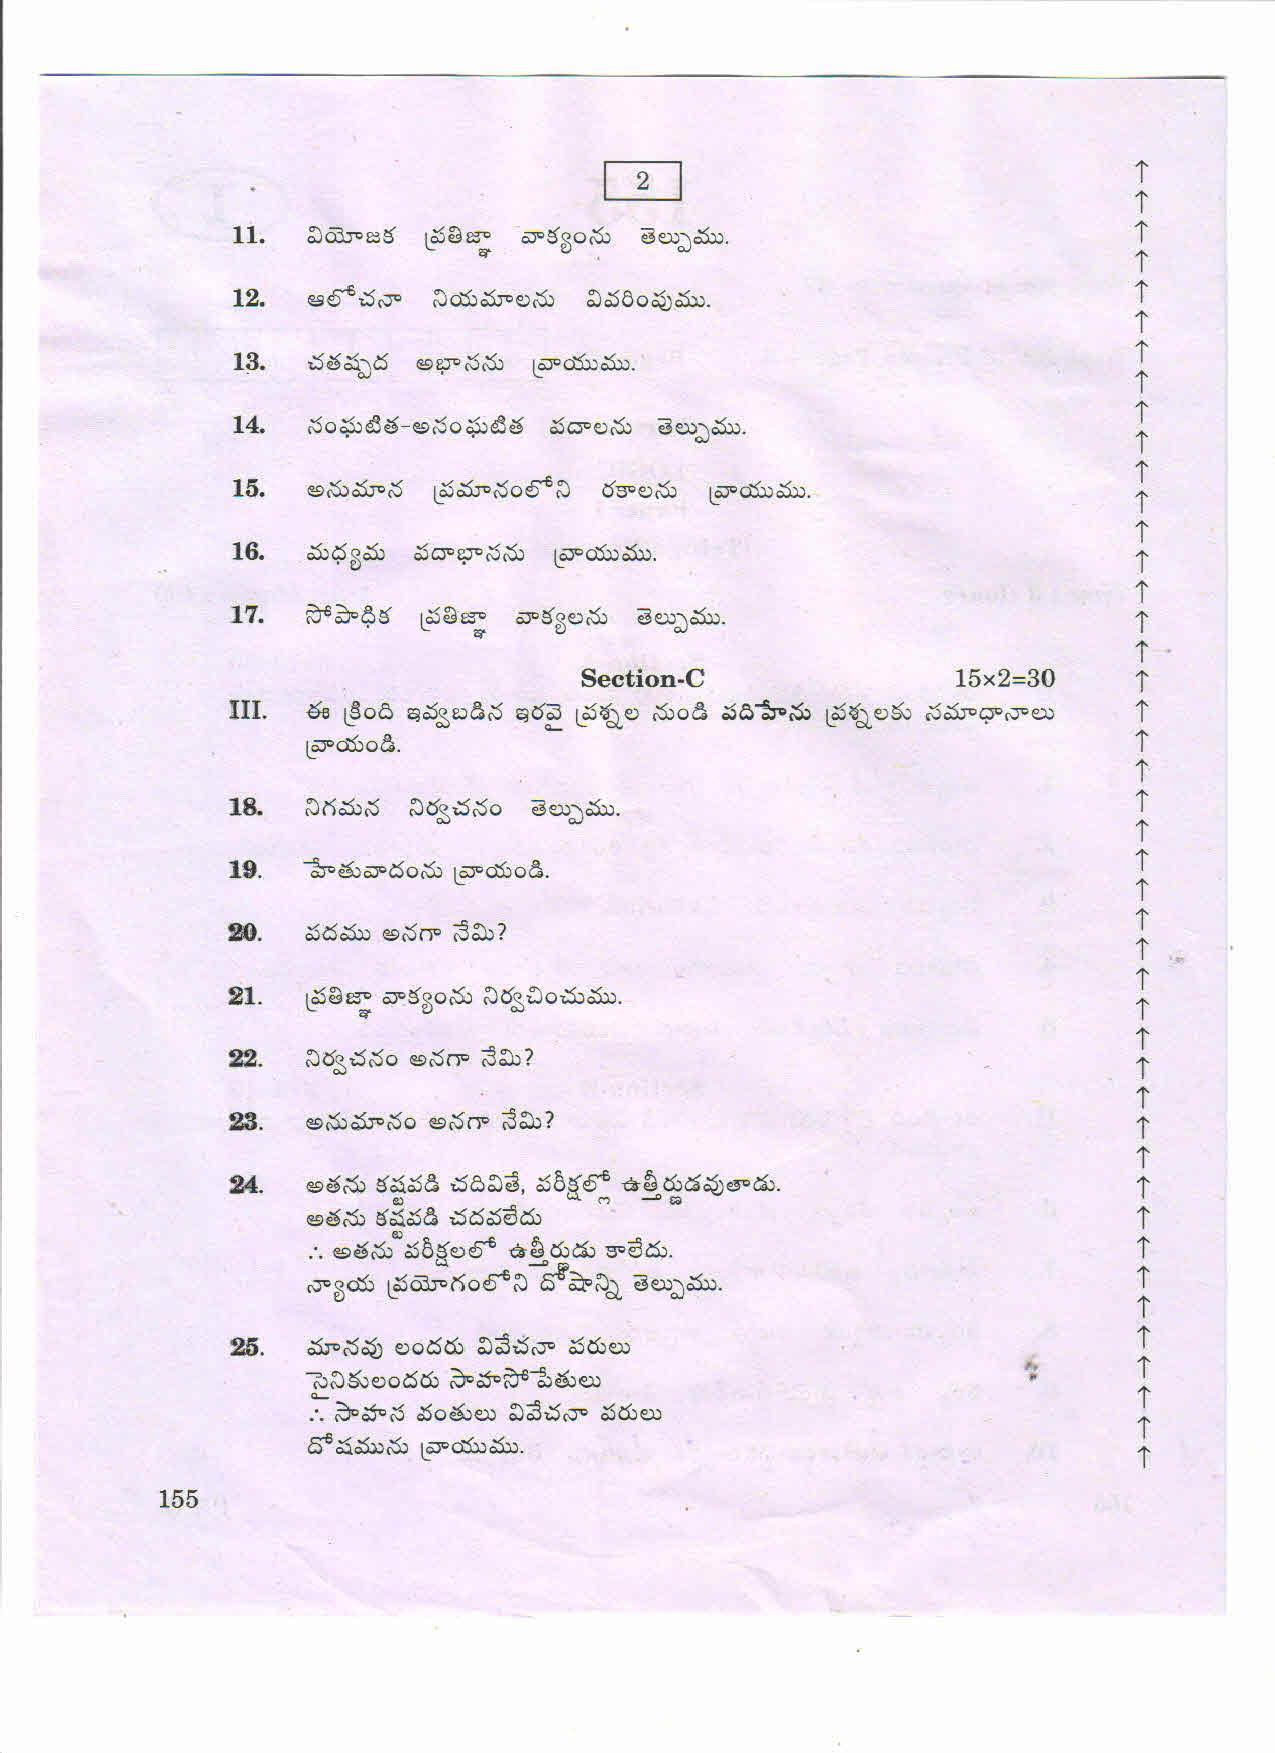 2
11. వియోజక ప్రతిజ్ఞా వాక్యంను తెల్పుము.
12. ఆలోచనా నియమాలను వివరింపుము.
13. చతష్పద అభాసను వ్రాయుము.
14. సంఘటిత-అసంఘటిత పదాలను తెల్పుము.
15. అనుమాన ప్రమానంలోని రకాలను వ్రాయుము.
16. మధ్యమ పదాభాసను వ్రాయుము.
17. సోపాధిక ప్రతిజ్ఞా వాక్యలను తెల్పుము.
Section-C 15×2=30
III. ఈ క్రింది ఇవ్వబడిన ఇరవై ప్రశ్నల నుండి పదిహేను ప్రశ్నలకు సమాధానాలు
వ్రాయండి.
18. నిగమన నిర్వచనం తెల్పుము.
19. హేతువాదంను వ్రాయండి.
20. పదము అనగా నేమి?
21. ప్రతిజ్ఞా వాక్యంను నిర్వచించుము.
22. నిర్వచనం అనగా నేమి?
23. అనుమానం అనగా నేమి?
24. అతను కష్టపడి చదివితే, పరీక్షల్లో ఉత్తీర్ణుడవుతాడు.
అతను కష్టపడి చదవలేదు
∴ అతను పరీక్షలలో ఉత్తీర్ణుడు కాలేదు.
న్యాయ ప్రయోగంలోని దోషాన్ని తెల్పుము.
25. మానవు లందరు వివేచనా పరులు
సైనికులందరు సాహసోపేతులు
∴ సాహస వంతులు వివేచనా పరులు
దోషమును వ్రాయుము.
155